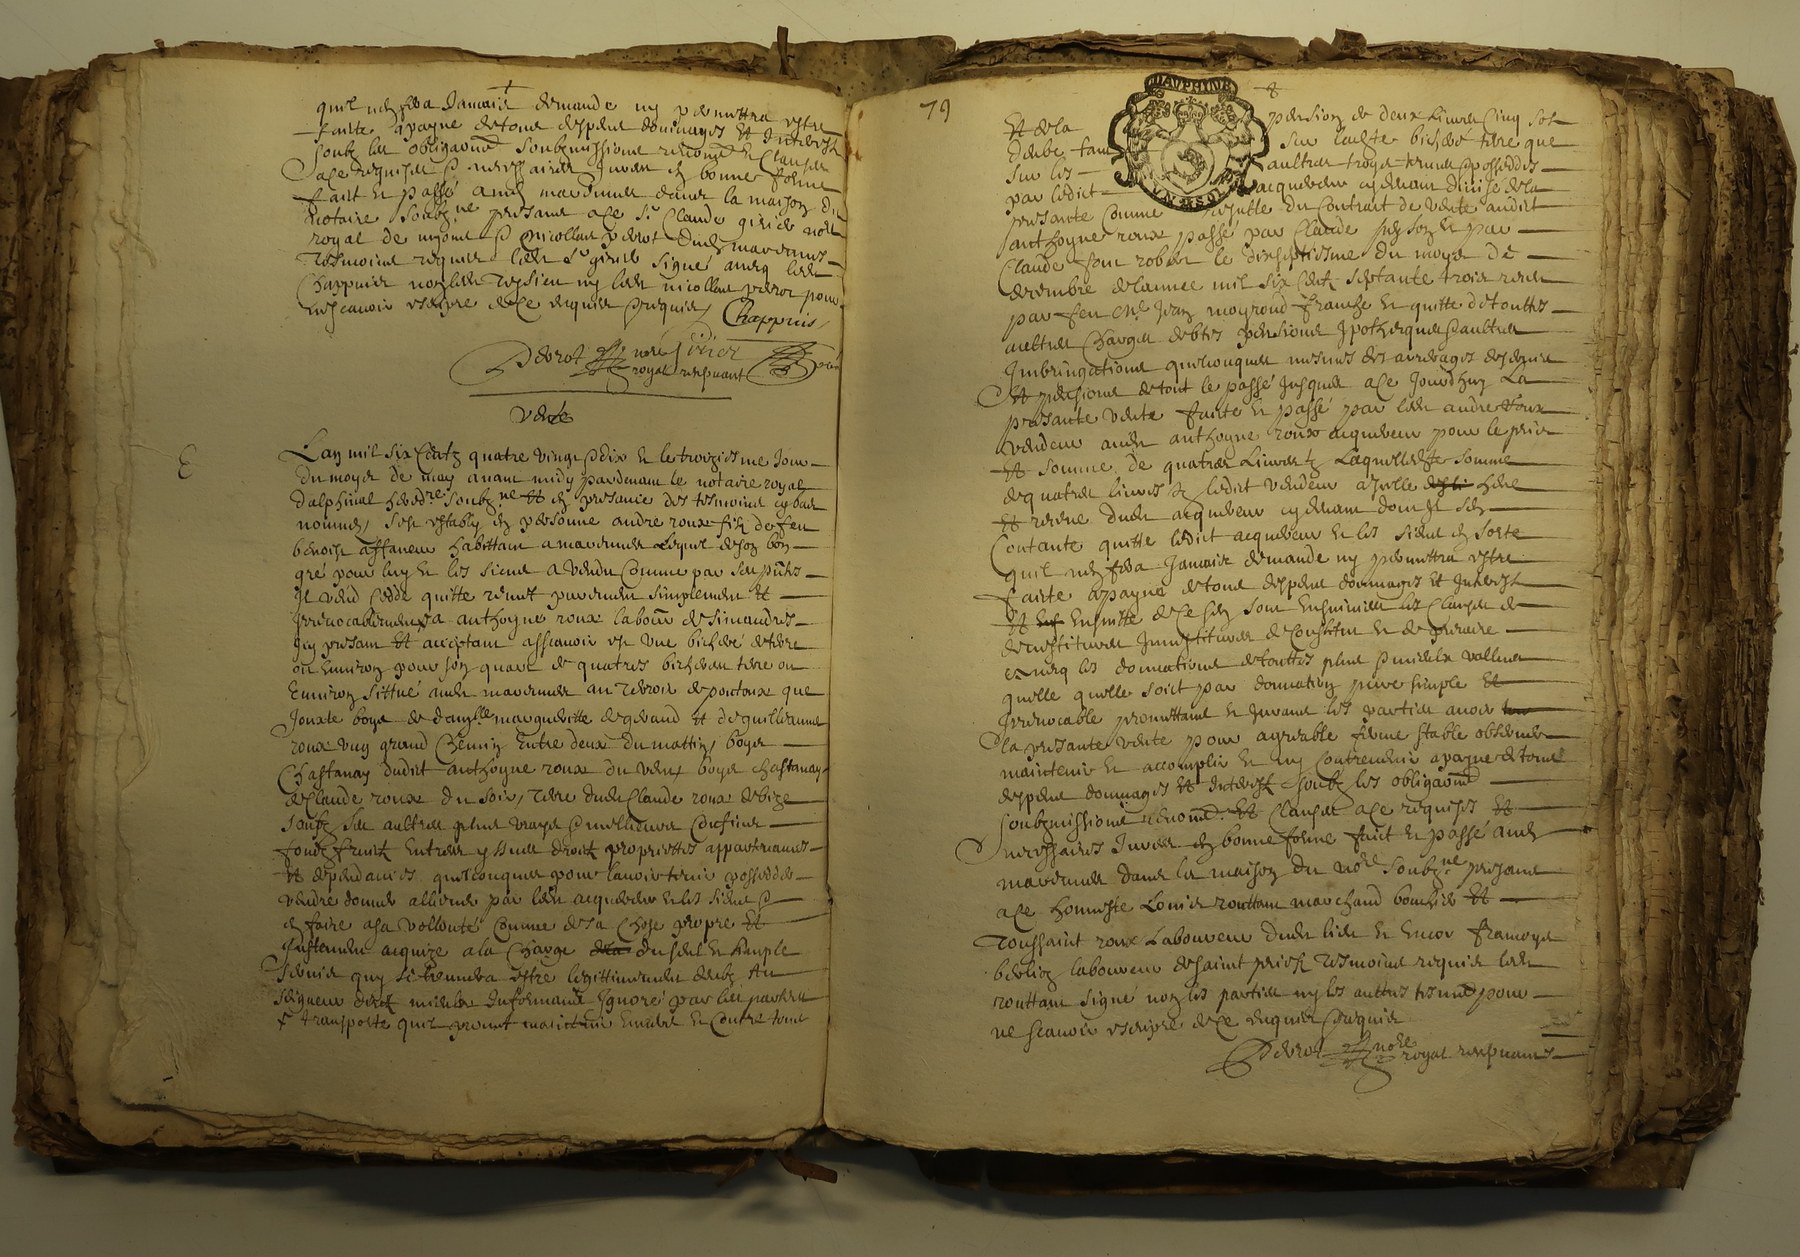 quil nen fera Jamais demande ny permettra estre
faite apayne de tous despens dommages Et Interest
soubz les obligaōns soubzmissions renonōns Et Clauses
ace requises & necessaires Jurées en bonne forme
fait et passé ausd marennes dans la maison du
notaire soubzne present ace Sr Claude girier nore
royal de & nicollas perrot dud marennes
tesmoins requis led Sr girier signé avecq led
Chappuis non led ny led nicollas perrot pour
ne scavoir escripre dece enquis & requis Chappuis
Perrot nore Girier
royal recepvant
Vente
Lan mil six Centz quatre vingt & dix et le troiziesme Jour
du moys de may avant midy pardevant le notaire royal
dalphinal heredre soubzne Et en presance des tesmoins cy bas
nommés, sest estably en personne andre roux filz de feu
benoist affaneur habittant a marennes Lequel de son bon
gré pour luy et les siens a vendu Comme par ses pūtes
Il vend Cedde quitte remet purement simplement Et
Irrevocablement a anthoyne roux labour de simandres
Icy present Et acceptant assavoir est une bicheé de terre
ou environ pour son quart de quatres bicherees terre ou
Environ Sittué aud marennes au terroir de poutoux que
Jouxte boys de damlle margueritte de girand Et de guillaume
roux vng grand Chemin entre deux du mattin, boys
Chastanay dudit anthoyne roux du vent boys chastanay
de Claude roux du soir, Terre dud Claude roux de bize
Sauf ses aultres plus vrays & meilleurs Confins
fondz fruitz Entrées yssues droitz propriettés appartenances
Et dependances quelconques pour lavoir tenir possedder
vendre donner alliener par led acquereur et les siens &
en faire a sa vollonté Comme de sa Chose propre Et
Justement acquize a la Charge du seul et simple
servis quy se trouvera estre legittimement deub Au
seigneur direct mieulx Informant Ignoré par les parties
& transporte quil promet maintenir envers et Contre tous
79
DAUPHINE
UN S SOL
Et de la pension de deux livres Cinq sols
deube tant sur ladte bicheé terre que
sur les aultres troys possedées
par ledict acquereur cy devant divise de la
presante Comme resulte du Contract de vente audit
anthoyne roux passé par Claude et par
Claude le dixseptiesme du moys de
decembre de lannee mil six Centz septante trois receu
par feu Me Jean moyroud franche et quitte de touttes
aultres Charges debtes pensions Ipotheques & aultres
Imbringations quelconques mesmes des arrerages des servis
Et pensions de tout le passé Jusques ace Jourdhuy La
presante vente faite et passé par led andre Roux
vendeur aud anthoyne roux acquereur pour le prix
Et somme de quatres Livres tz Laquelle dte somme
de quatres livres tz ledict vendeur a Icelle heüe
Et receüe dud acquereur cy devant dont Il sen
Contante quitte ledict acquereur et les siens en sorte
quil nen fera Jamais demande ny permettra estre
faite apayne de tous despens dommages Et Interest
Et Ensuitte de ce sont Ensuivies les Clauses de
devestiture Jnvestiture de Constitut et de precaire
avecq les donnations de touttes plus & mieulx vallues
quelle quelle soict par donnation pure simple Et
Irrevocable promettans et Jurans les parties avoir
la presante vente pour agreable ferme stable observer
maintenir et accomplir et ny Contrevenir apayne de tous
despens dommages Et Interest soubz les obligaōns
soubzmissions renonōns Et Clauses ace requises Et
necessaires Jurées en bonne forme fait et passé ausd
marennes dans la maison du nore soubzne present
ace honneste Louis routtant marchand bouchier Et
Toussaint roux Laboureur dud lieu et
laboureur de saint priest tesmoins requis led
routtant signé non les parties ny les aultres tesmoingz pour
ne scavoir escripre de ce enquis & requis
Perrot nore
royal recepvant